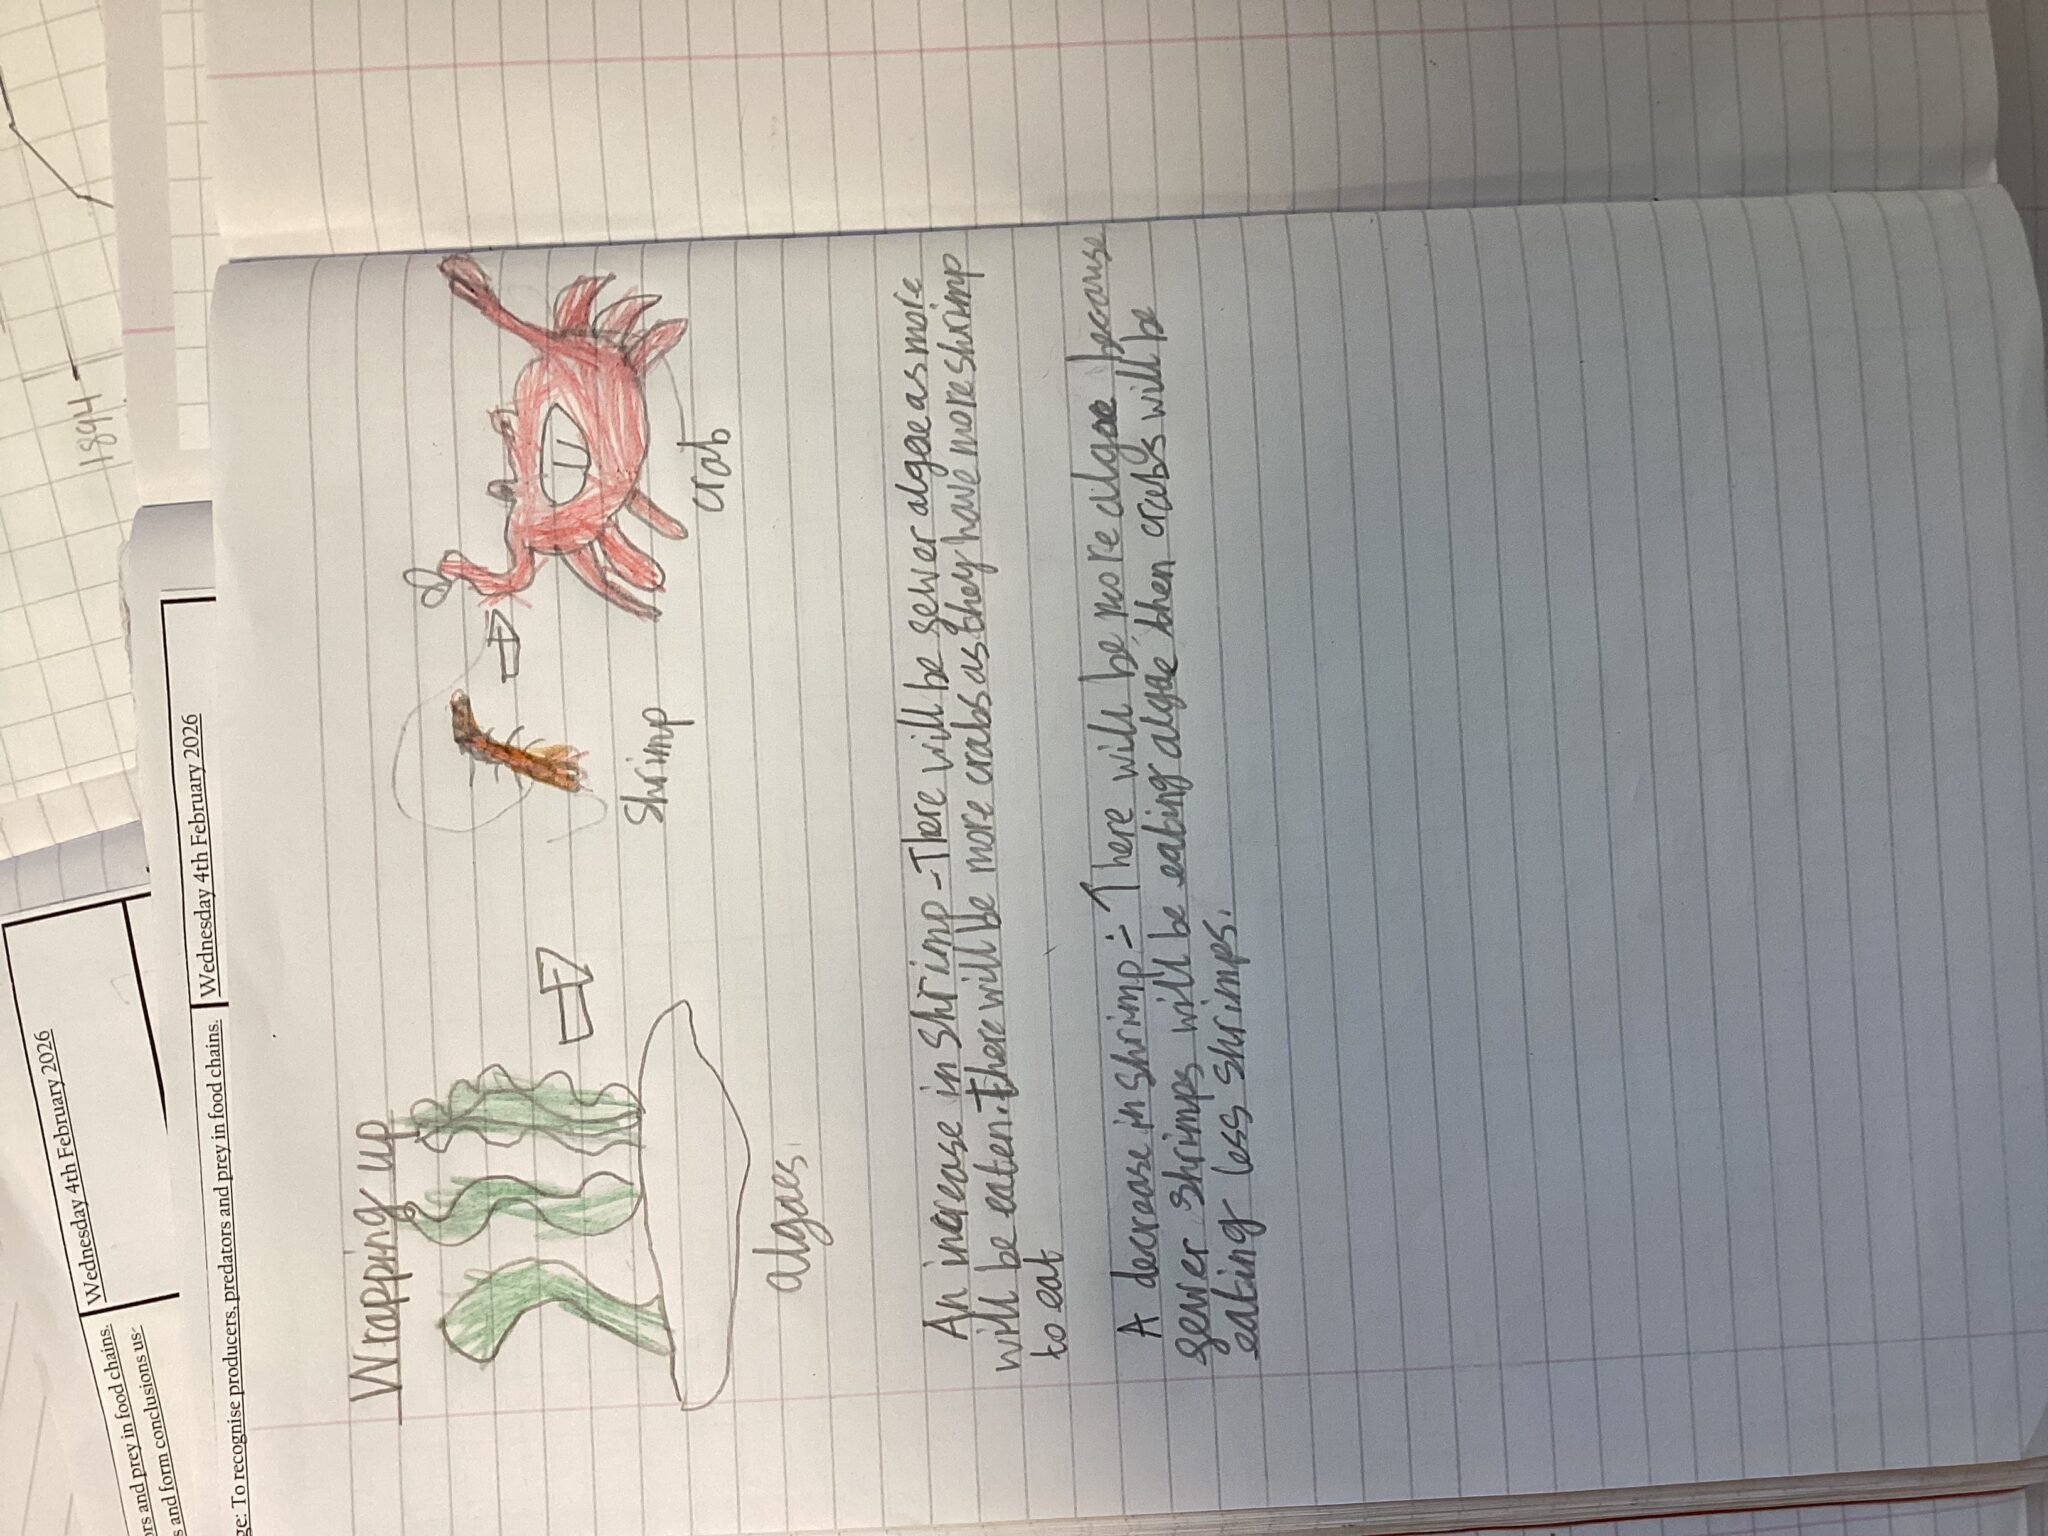 1894
Wednesday 4th February 2026
ors and prey in food chains.
s and form conclusions us
Wednesday 4th February 2026
ge: To recognise producers, predators and prey in food chains.
Wrapping up
algaes
Shrimp
crab
An increase in Shrimp - There will be fewer algae as more
will be eaten. There will be more crabs as they have more shrimp
to eat
A decrease in Shrimp :- There will be more algae because
fewer shrimps will be eating algae then crabs will be
eating less shrimps.